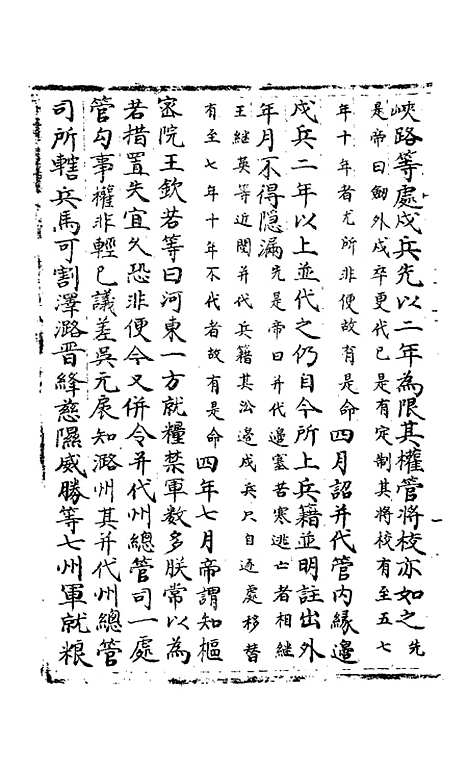 峽路等處戍兵先以二年為限其權管將校亦如之先
是帝曰劒外戍卒更代已是有定制其將校有至五七
年十年者尤所非便故有是命四月詔并代管內緣邊
戍兵二年以上並代之仍自今所上兵籍並明註出外
年月不得隱漏先是帝曰并代邊塞苦寒逃亡者相継
王継英等近閱并代兵籍其沿邊戍兵只自近處移替
有至七年十年不代者故有是命四年七月帝謂知樞
宻院王欽若等曰河東一方就糧禁軍数多朕常以為
若措置失宜久恐非便今又併令并代州緫管司一處
管勾事權非輕已議差吳元扆知潞州其并代州緫管
司所轄兵馬可割澤潞晋絳慈隰威勝等七州軍就粮